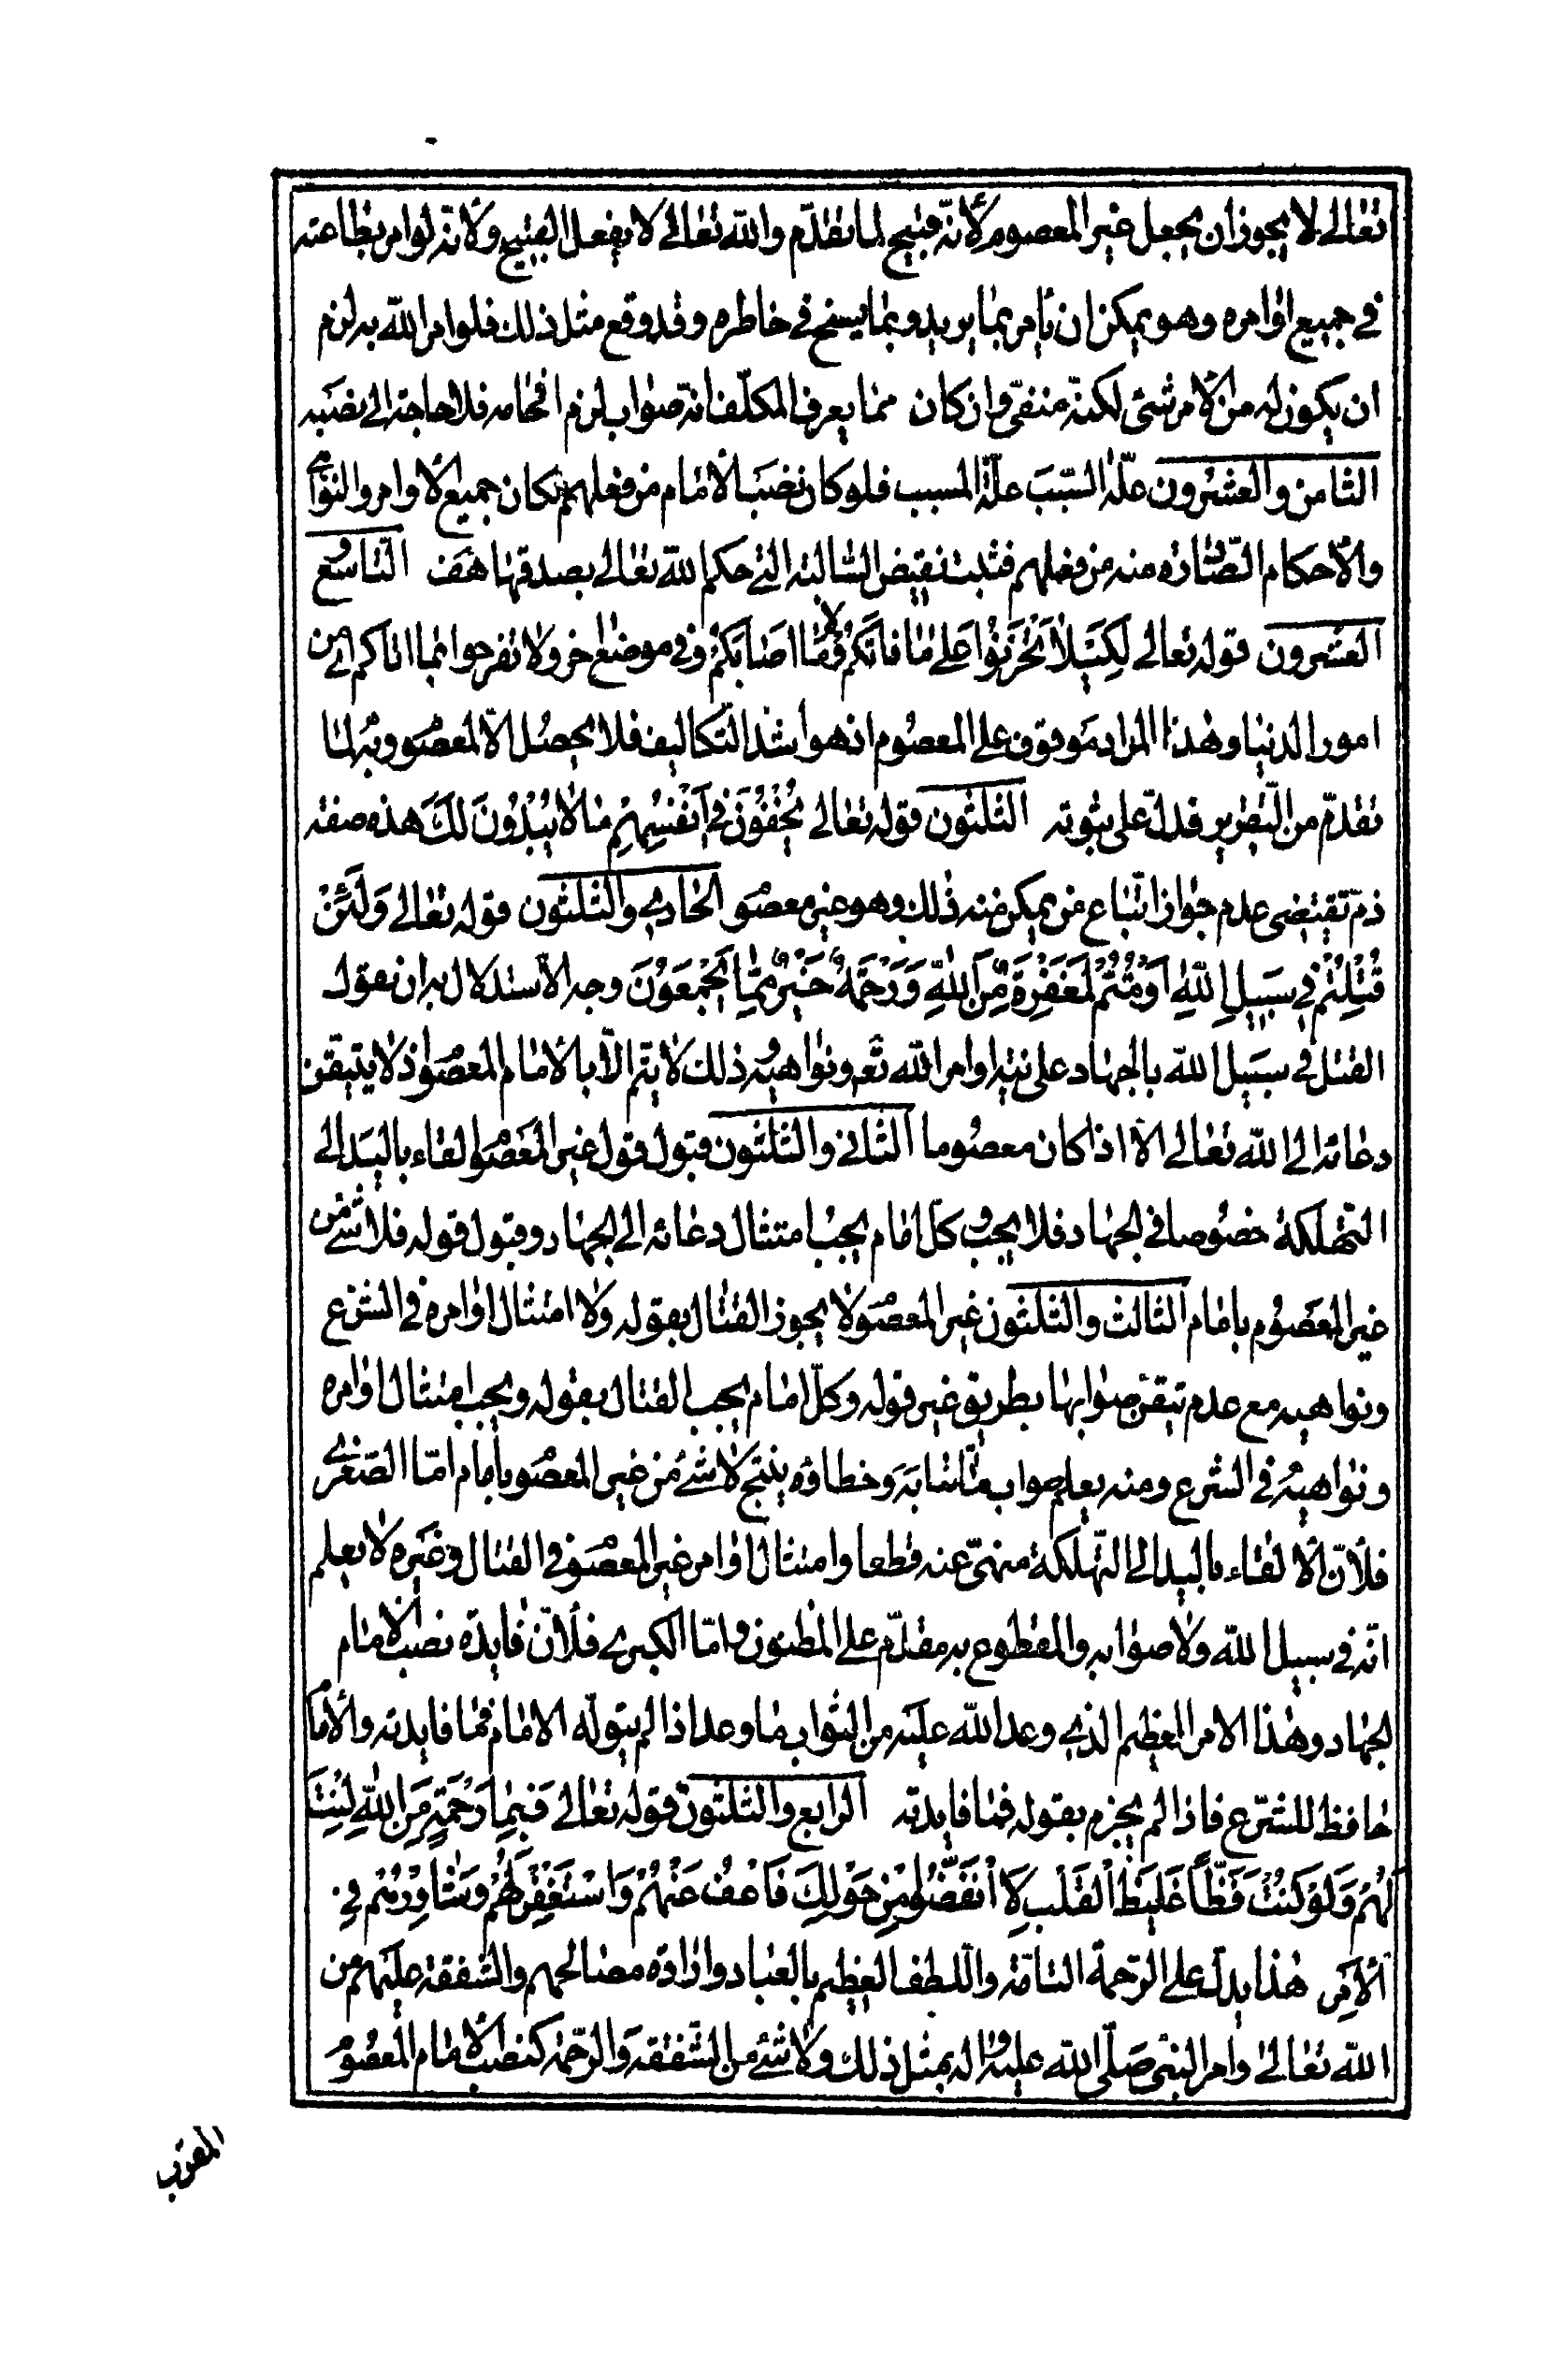 تعالى لا يجوز ان يجعل غير المعصوم لأنه قبيح لما تقدّم والله تعالى لا يفعل القبيح ولأنه لو امر بطاعته
في جميع اوامره وهو يمكن ان يأمر بما يريد وبما يسنح في خاطره وقد وقع مثل ذلك فلو امر الله به لزم
ان يكون له من الأمر شئ لكنه منفىّ وان كان مما يعرف المكلّف انه صواب لزم افحامه فلا حاجة الى نصبه
الثامن والعشرون علّة السّبب علّة المسبب فلو كان نصب الأمام من فعلهم لكان جميع الأوامر والنواهي
والأحكام الصّادره منه من فعلهم فثبت نقيض السّالبة التي حكم الله تعالى بصدقها هف التاسع و
العشرون قوله تعالى لِكَيْلاَ تَحْزَنُوا عَلى مٰا فاتَكُمْ وَلاٰ مٰا اَصٰابَكُمْ وفي موضع اخر ولا تفرحوا بما اتاكم اي من
امور الدنيا وهذا المراد موقوف على المعصوم اذ هو اشدّ التكاليف فلا يحصل الا بالمعصوم وتمر لما
تقدّم من التقرير فدلّ على ثبوته الثلثون قوله تعالى يُخْفُونَ في اَنْفُسِهِمْ مٰا لاٰ يُبْدُونَ لَكَ هذه صفة
ذمّ تقتضى عدم جواز اتباع من يمكن منه ذلك وهو غير معصوم الحادي والثلثون قوله تعالى وَلَئِنْ
قُتِلْتُمْ في سَبيلِ اللهِ اَوْ مُتُّمْ لَمَغْفِرَةٌ مِنَ اللهِ وَرَحْمَةٌ خَيْرٌ مِمّٰا يَجْمَعُونَ وجه الأستدلال به ان نقول
القتل في سبيل الله بالجهاد على نية اوامر الله تع ونواهيه وذلك لا يتم الّا بالأمام المعصوم اذ لا يتيقن
دعائه الى الله تعالى الّا اذا كان معصوما الثاني والثلثون قبول قول غير المعصوم القاء باليد الى
التهلكة خصوصا في الجهاد فلا يجب وكل امام يجب امتثال دعائه الى الجهاد وقبول قوله فلا شئ من
غير المعصوم بامام الثالث والثلثون غير المعصوم لا يجوز القتال بقوله ولا امتثال اوامره في الشرع
ونواهيه مع عدم تيقن صوابها بطريق غير قوله وكلّ امام يجب القتال بقوله ويجب امتثال اوامره
ونواهيه في الشرع ومنه يعلم صواب ما شابه وخطاؤه ينتج لا شئ من غير المعصوم بامام امّا الصّغرى
فلأنّ الألقاء باليد الى التهلكة منهىّ عنه قطعا وامتثال اوامر غير المعصوم في القتال وغيره لا يعلم
انّه في سبيل الله ولا صوابه والمقطوع به مقدّم على المظنون وامّا الكبرى فلأنّ فايدة نصب الأمام
الجهاد وهذا الامر العظيم الذي وعد الله عليه من الثواب ما وعد اذا لم يتولّه الامام فما فايدته والأمام
حافظ للشرع فاذا لم يجزم بقوله فما فايدته الرابع والثلثون قوله تعالى فَبِمٰا رَحْمَةٍ مِنَ اللهِ لِنْتَ
لَهُمْ وَلَوْ كُنْتَ فَظّاً غَليظَ الْقَلْبِ لاَ انْفَضُّوا مِنْ حَوْلِكَ فَاعْفُ عَنْهُمْ وَاسْتَغْفِرْ لَهُمْ وَشٰاوِرْهُمْ فِي
الْاَمْرِ هذا يدلّ على الرّحمة التامّة واللطف العظيم بالعباد وارادة مصالحهم والشفقة عليهم من
الله تعالى وامر النبي صلّى الله عليه واله بمثل ذلك ولا شئ من الشفقة والرّحمة كنصب الأمام المعصوم
المقرب